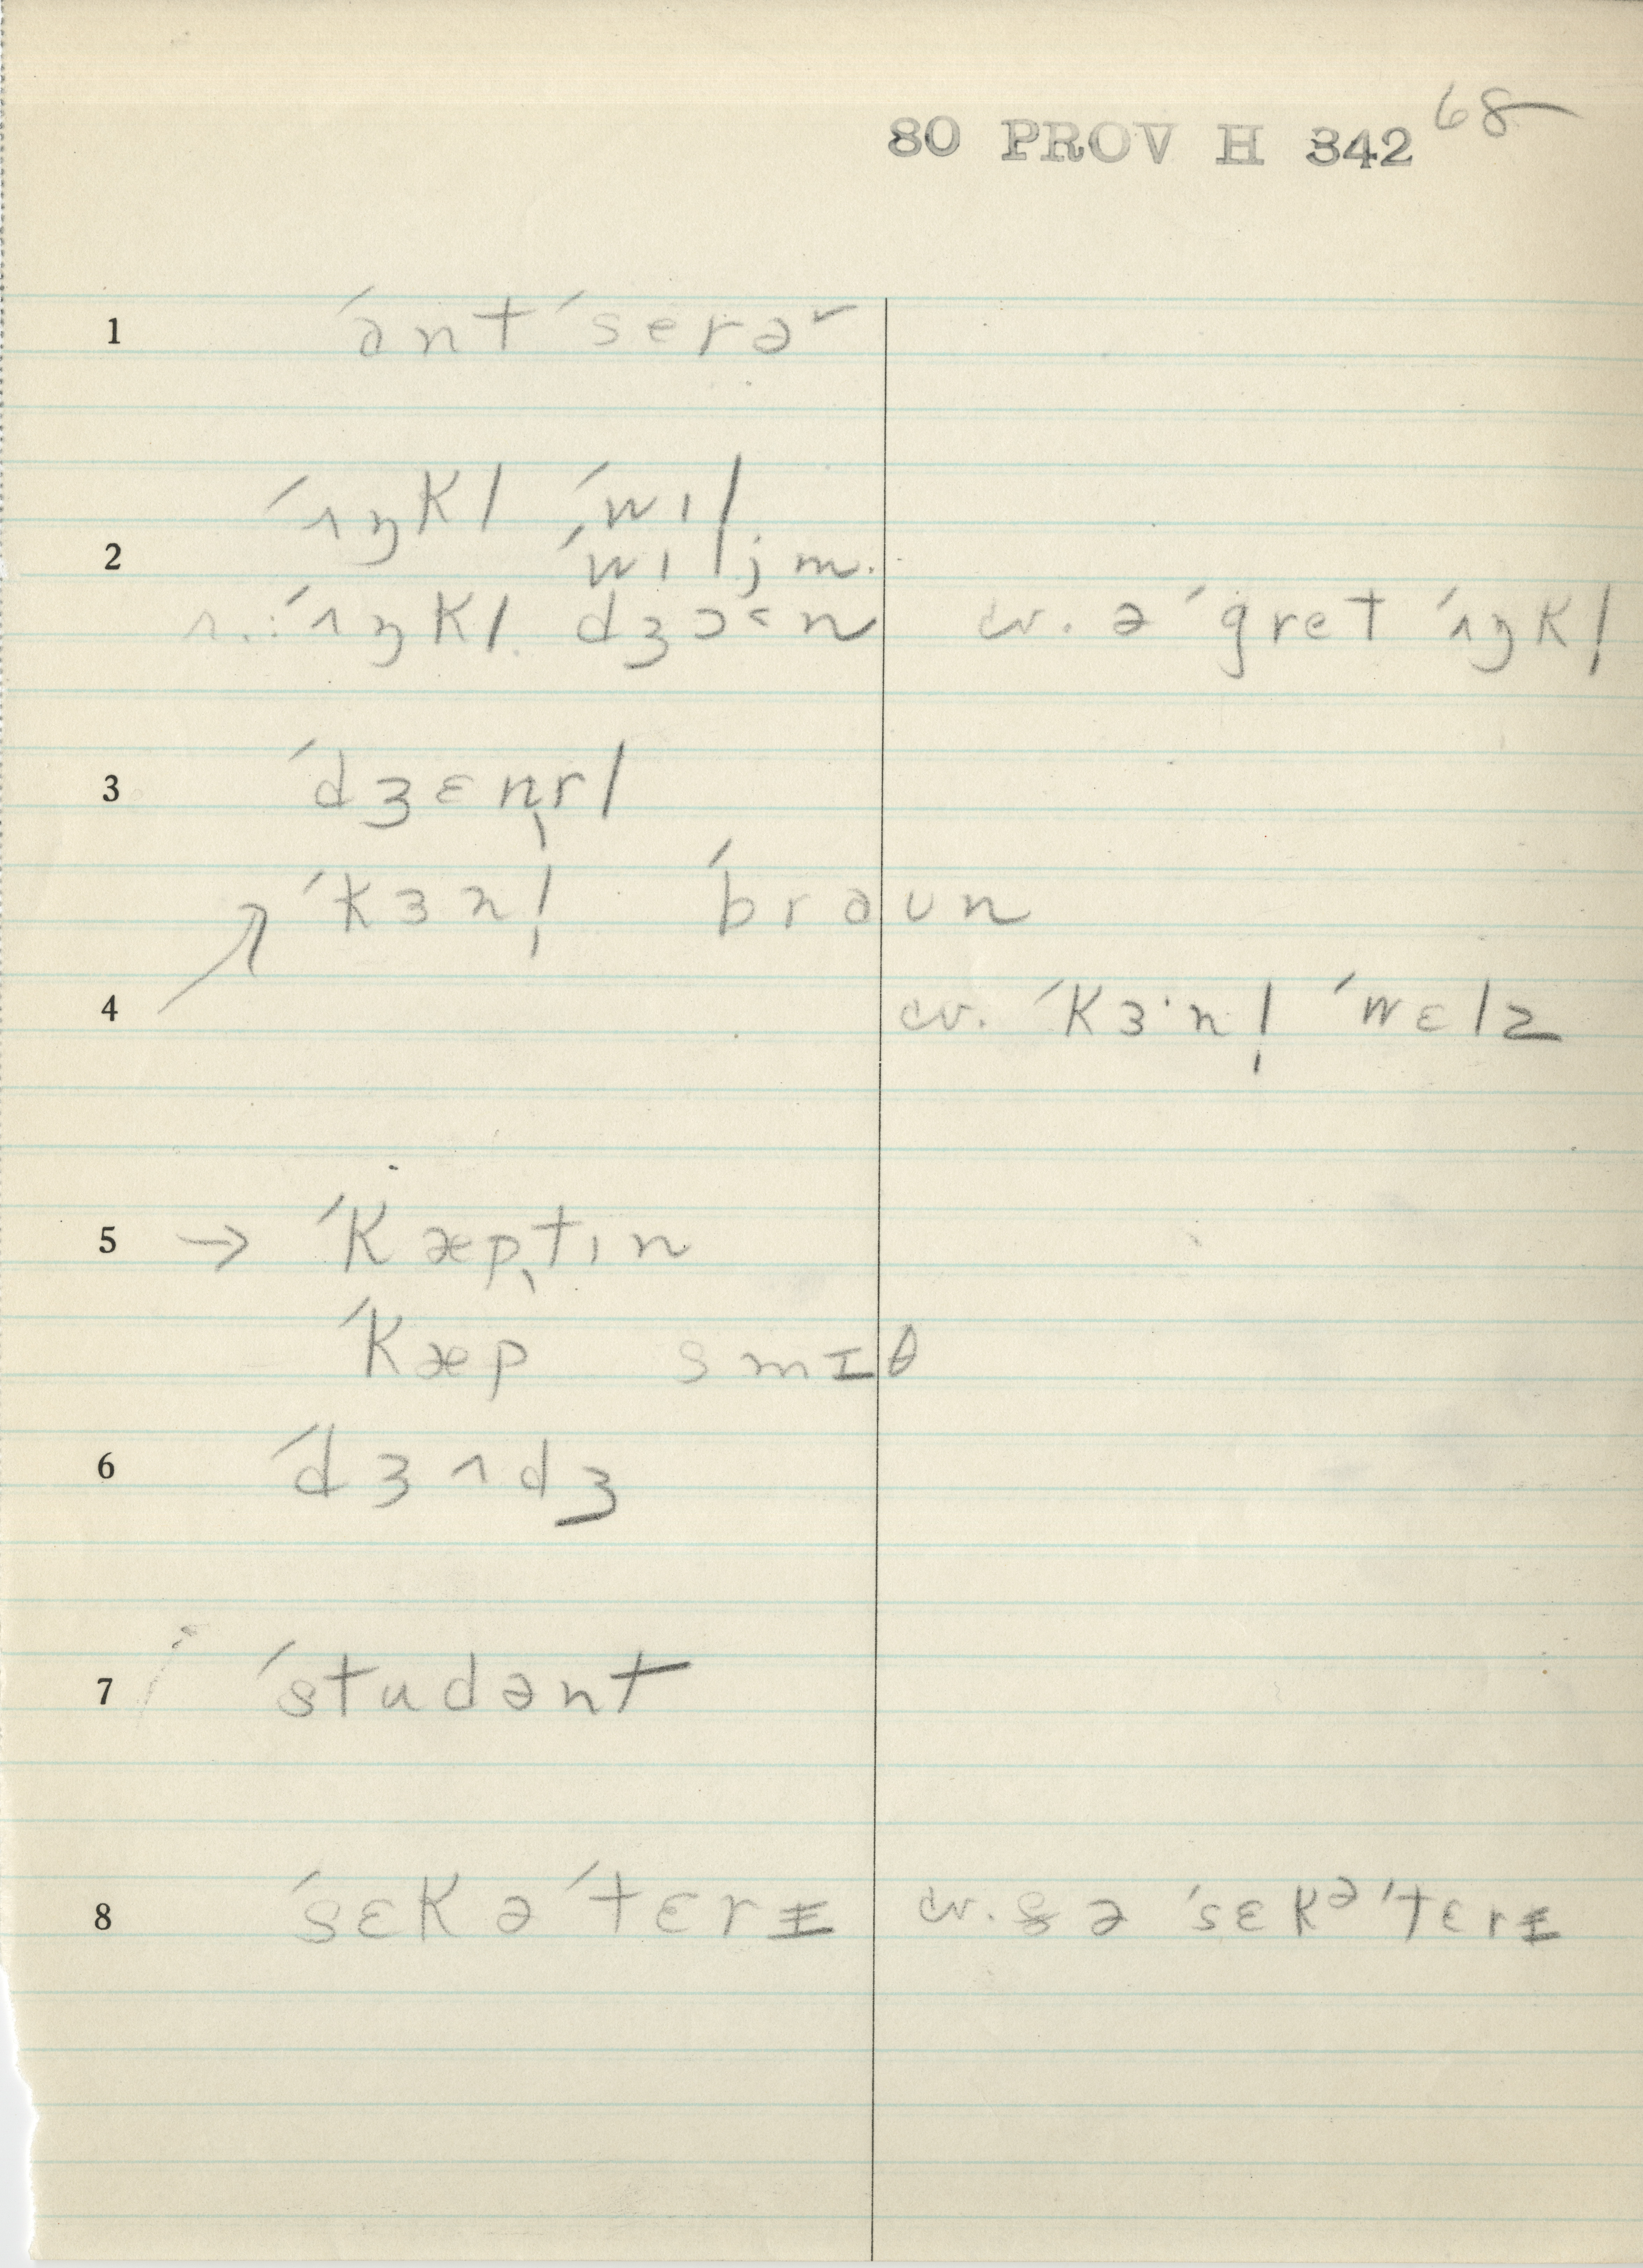 80 PROV H 342 68
1 ´ant ´serə˞
´ʌŋkl ´wɪl
2 ´wɪljm.
r.:´ʌŋkl. dʒɔ˂n cv. ə ´gret ´ʌŋkl̩
3 ´dʒɛnrl
↗ ´kɜnl̩ ´braun
4 cv. ´kɜ·nl̩ ´wɛlz
5 → ´kæptɪn
´kæp smɪθ
6 ´dʒʌdʒ
7 ´studənt
8 ´sɛkə´tɛrɪ cv. ə ´sɛkə´tɛrɪ